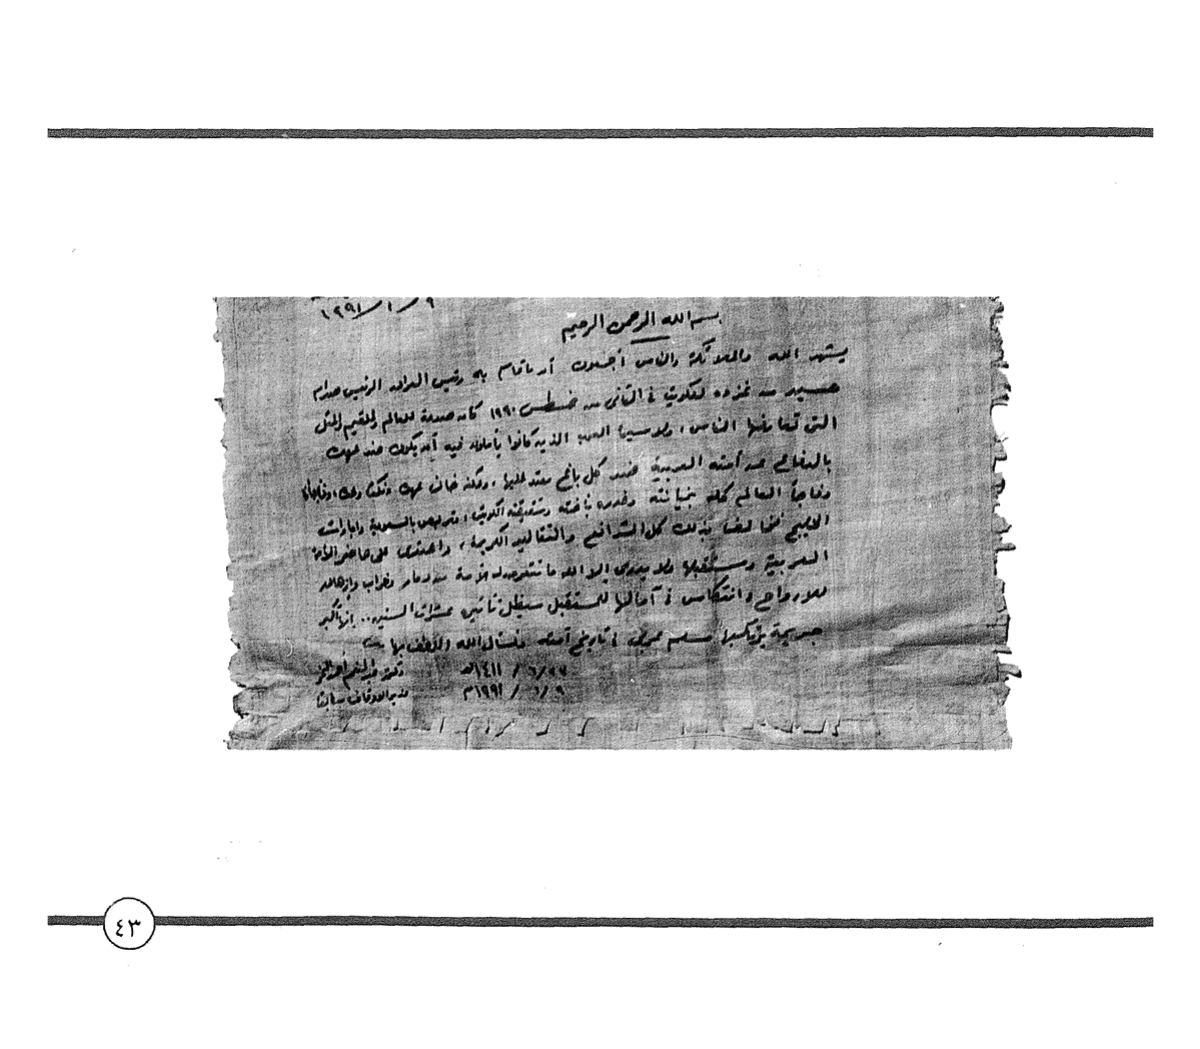 ١٩٩١/١/٩
بسم الله الرحمن الرحيم
يشهد الله والملائكة والناس أجمعون أن ما قام به رئيس العراق الرئيس صدام
حسين من غزوه للكويت في الثاني من أغسطس ١٩٩٠ كان صدمة للعالم وللقيم والمثل
التي تعارفها الناس، ولا سيما العرب الذين كانوا يأملون فيه أن يكون عند عهده
بالدفاع عن أمته العربية ضد كل باغ معتد عليها، ولكنه خان عهده ونكث وعده، وفاجأنا
وفاجأ العالم كله بخيانته وغدره بأخته وشقيقته الكويت، وتربص بالسعودية وإمارات
الخليج مخالفا بذلك كل الشرائع والتقاليد الكريمة، واعتدى على حاضر الأمة
العربية ومستقبلها ولا يدري إلا الله ما تتعرض له الأمة من دمار وخراب وإزهاق
للأرواح وانتكاس في آمالها للمستقبل سيظل تأثيره عشرات السنين.. إنها أكبر
جريمة يرتكبها مسلم عربي في تاريخ أمته ونسأل الله اللطف بها
٢٣/٦/١٤١١هـ دكتور عبد المنعم أحمد النمر
٩/١/١٩٩١م وزير الأوقاف سابقا
٤٣